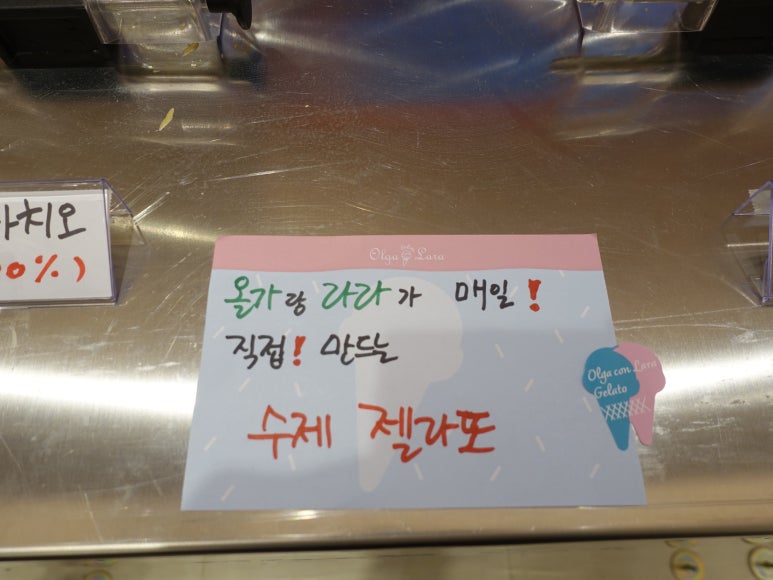 Olga Lara
올가랑 라라가 매일!
직접! 만드는
수제 젤라또
Olga con Lara
Gelato
치오
0%)